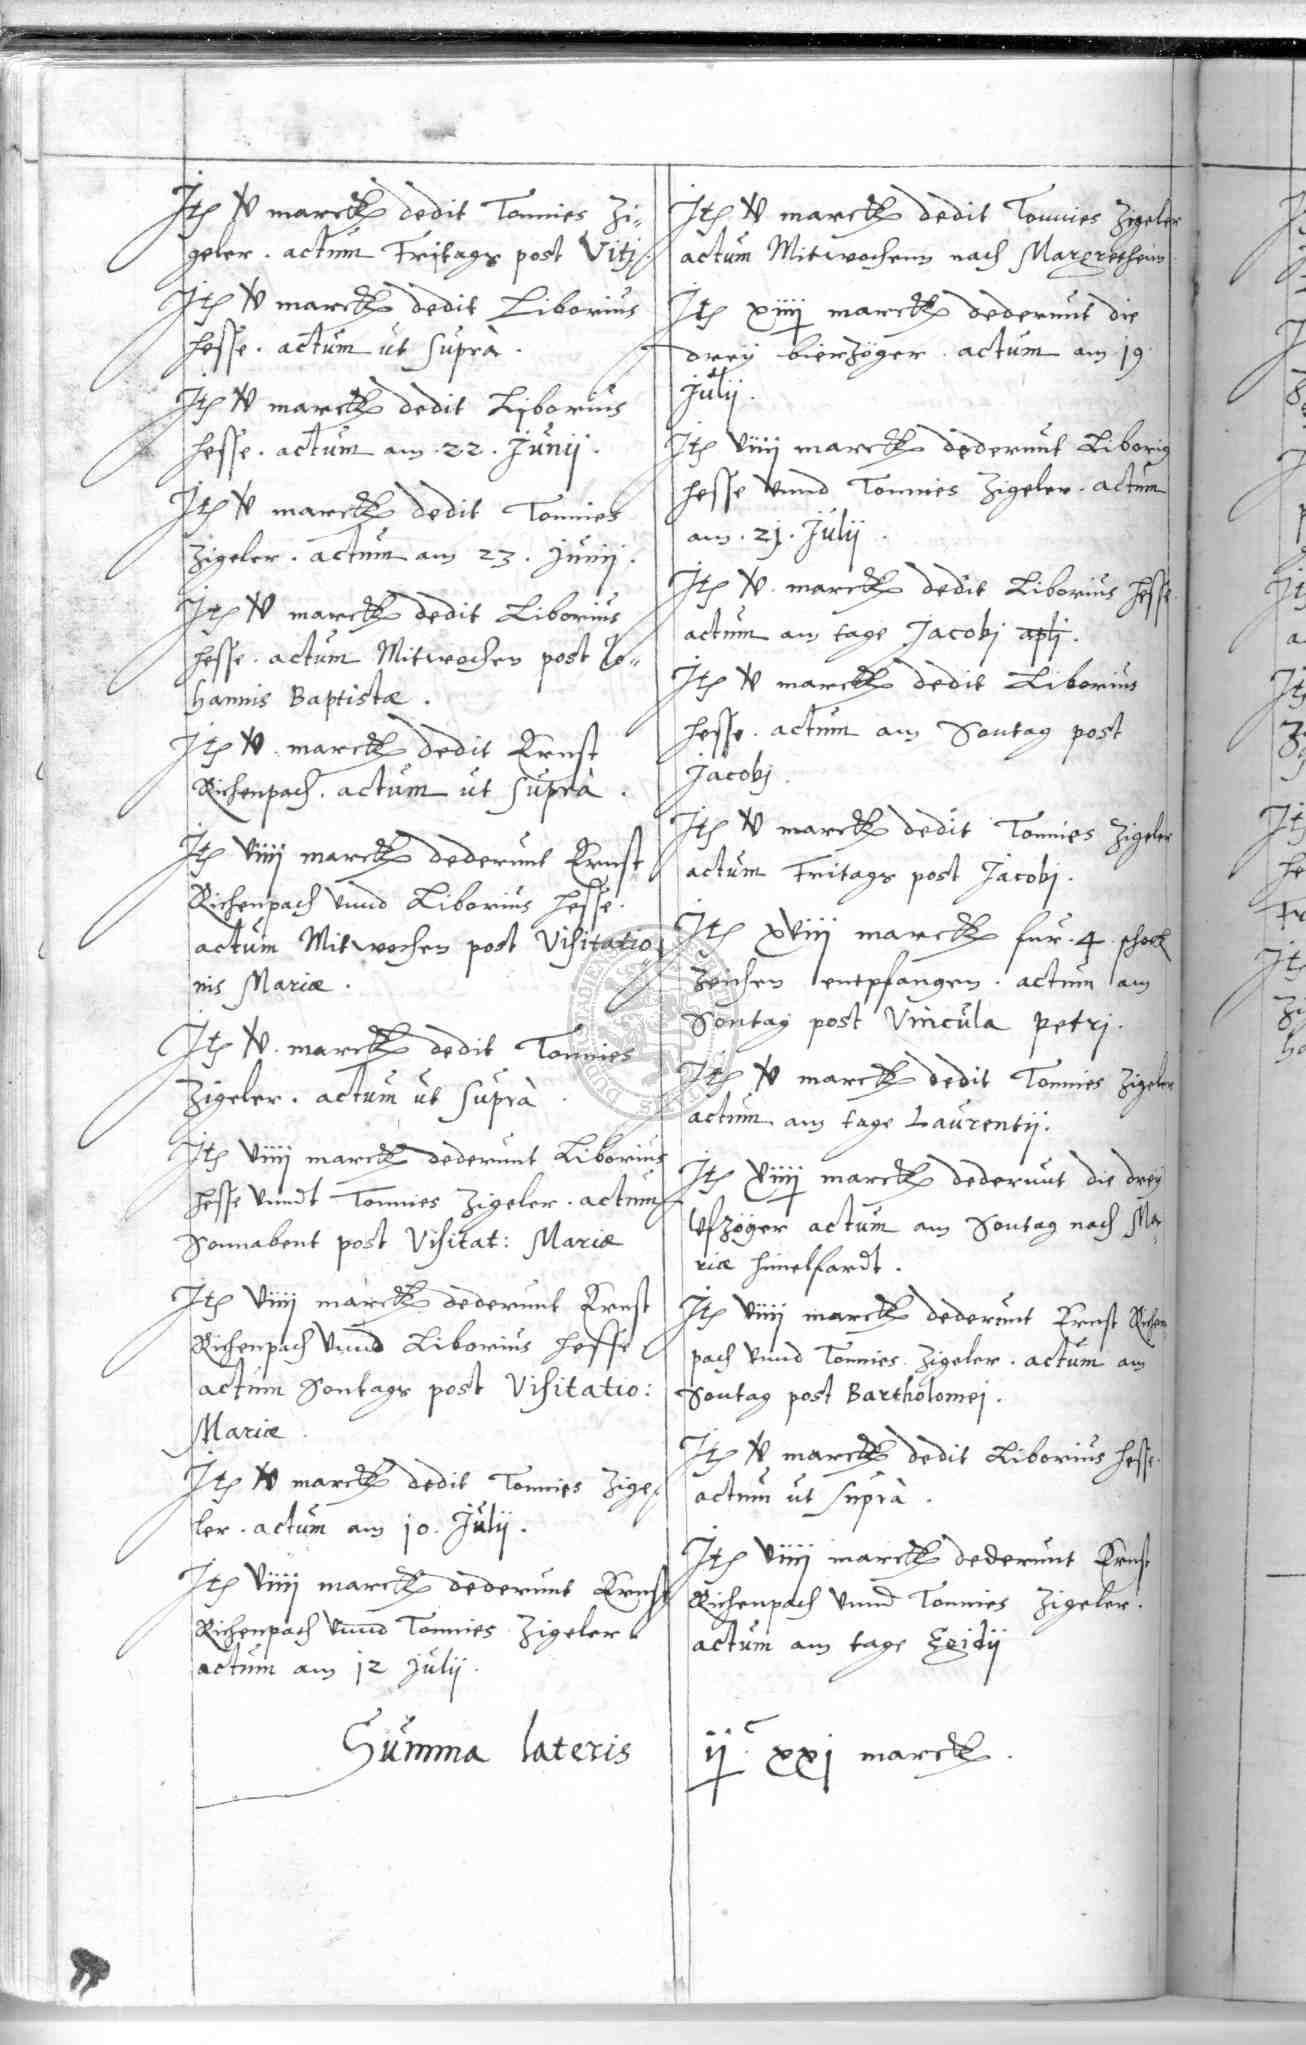 Itē v̵ marck dedit Tonnies Zi=
geler . actum Fritags post Vitj.
Itē v̵ marck dedit Liborius
Hesse . actum ut suprà .
Itē v̵ marck dedit Liborius
Hesse . actum am .22. Junij .
Itē v̵ marck dedit Tonnies
Zigeler . actum am 23 . Junij .
Itē v̵ marck dedit Liborius
Hesse . actum Mitwochen post Jo=
hannis Baptistæ .
Itē v̵ . marck dedit Ernst
Richenpach . actum ut suprà .
Itē viiij marck dederunt Ernst
Richenpach vnnd Liborius Hesse .
actum Mitwochen post Visitatio
nis Mariæ .
Itē v̵ . marck dedit Tonnies
Zigeler . actum ut suprà .
Itē viiij marck dederunt Liborius
Hesse vnndt Tonnies Zigeler . actum
Sonnabent post Visitat: Mariæ
Itē viiij marck dederunt Ernst
Richenpach vnnd Liborius Hesse
actum Sontags post Visitatio:
Mariæ .
Itē v̵ marck dedit Tonnies Zige=
ler . actum am 10 . Julij .
Itē viiij marck dederunt Ernst
Richenpach vnnd Tonnies Zigeler .
actum am 12 Julij .
Itē v̵ marck dedit Tonnies Zigeler
actum Mitwochenn nach Margrethenn .
Itē xiiij̵ marck dederunt die
drey bierzöger . actum am 19
Julij .
Itē viiij marck dederunt Liborig
Hesse vnnd Tonnies Zigeler . actum
am . 21 . Julij .
Itē v̵ . marck dedit Liborius Hesse .
actum am tage Jacobj aplj .
Itē v̵ marck dedit Liborius
Hesse . actum am Sontag post
Jacobj .
Itē v̵ marck dedit Tonnies Zigeler
actum Fritags post Jacobj .
Itē xviij marck fur . 4 . schock
Zeichen entpfangen . actum am
Sontag post Vincula petrj .
Itē v̵ marck dedit Tonnies Zigeler
actum am tage Laurentij .
Itē xiiij̵ marck dederunt die drey
vfzöger actum am Sontag nach Ma=
riæ himelfardt .
Itē viiij marck dederunt Ernst Richen
pach vnnd Tonnies Zigeler . actum am
Sontag post Bartholomej .
Itē v̵ marck dedit Liborius Hesse .
actum ut suprà .
Itē viiij marck dederunt Ernst
Richenpach vnnd Tonnies Zigeler .
actum am tage Egidij
Summa lateris ij̵ᶜ xxj marck .